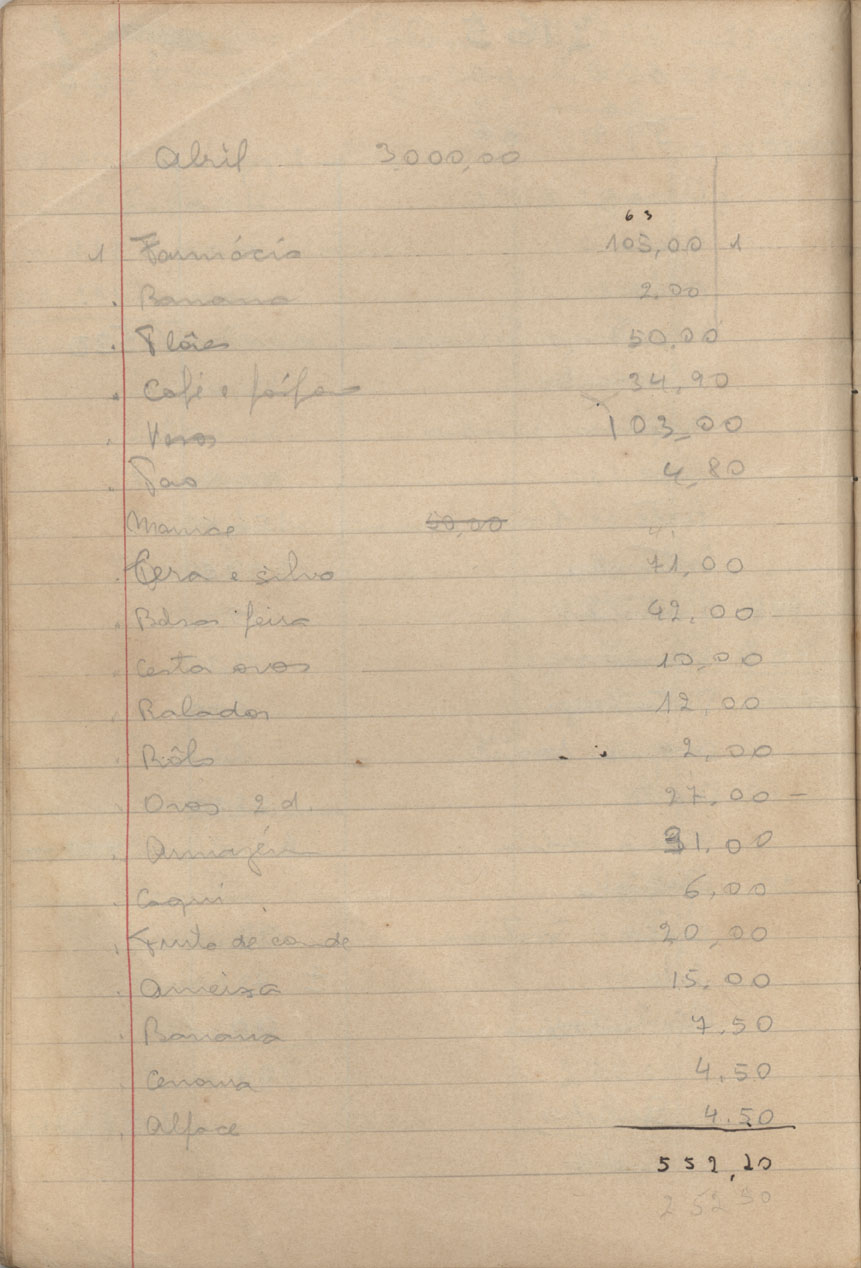 Abril 3.000,00
63
1 Farmácia 105,00 1
. Banana 2.00
. Flôres 50,00
. Café e fósforo 34,90
. Vasos 103,00
. Pão 4,80
50,00
. Cera e silvo 71,00
. Bolsas feira 42,00
. Cesta ovos 10,00
. Ralador 12,00
. Rôlo 2,00
. Ovos 2 d. 27,00 -
. Armazém 31,00
. Caqui 6,00
. Fruta de conde 20,00
. Ameixa 15,00
. Banana 7,50
. Cenoura 4.50
. Alface 4.50
552,20
252 50